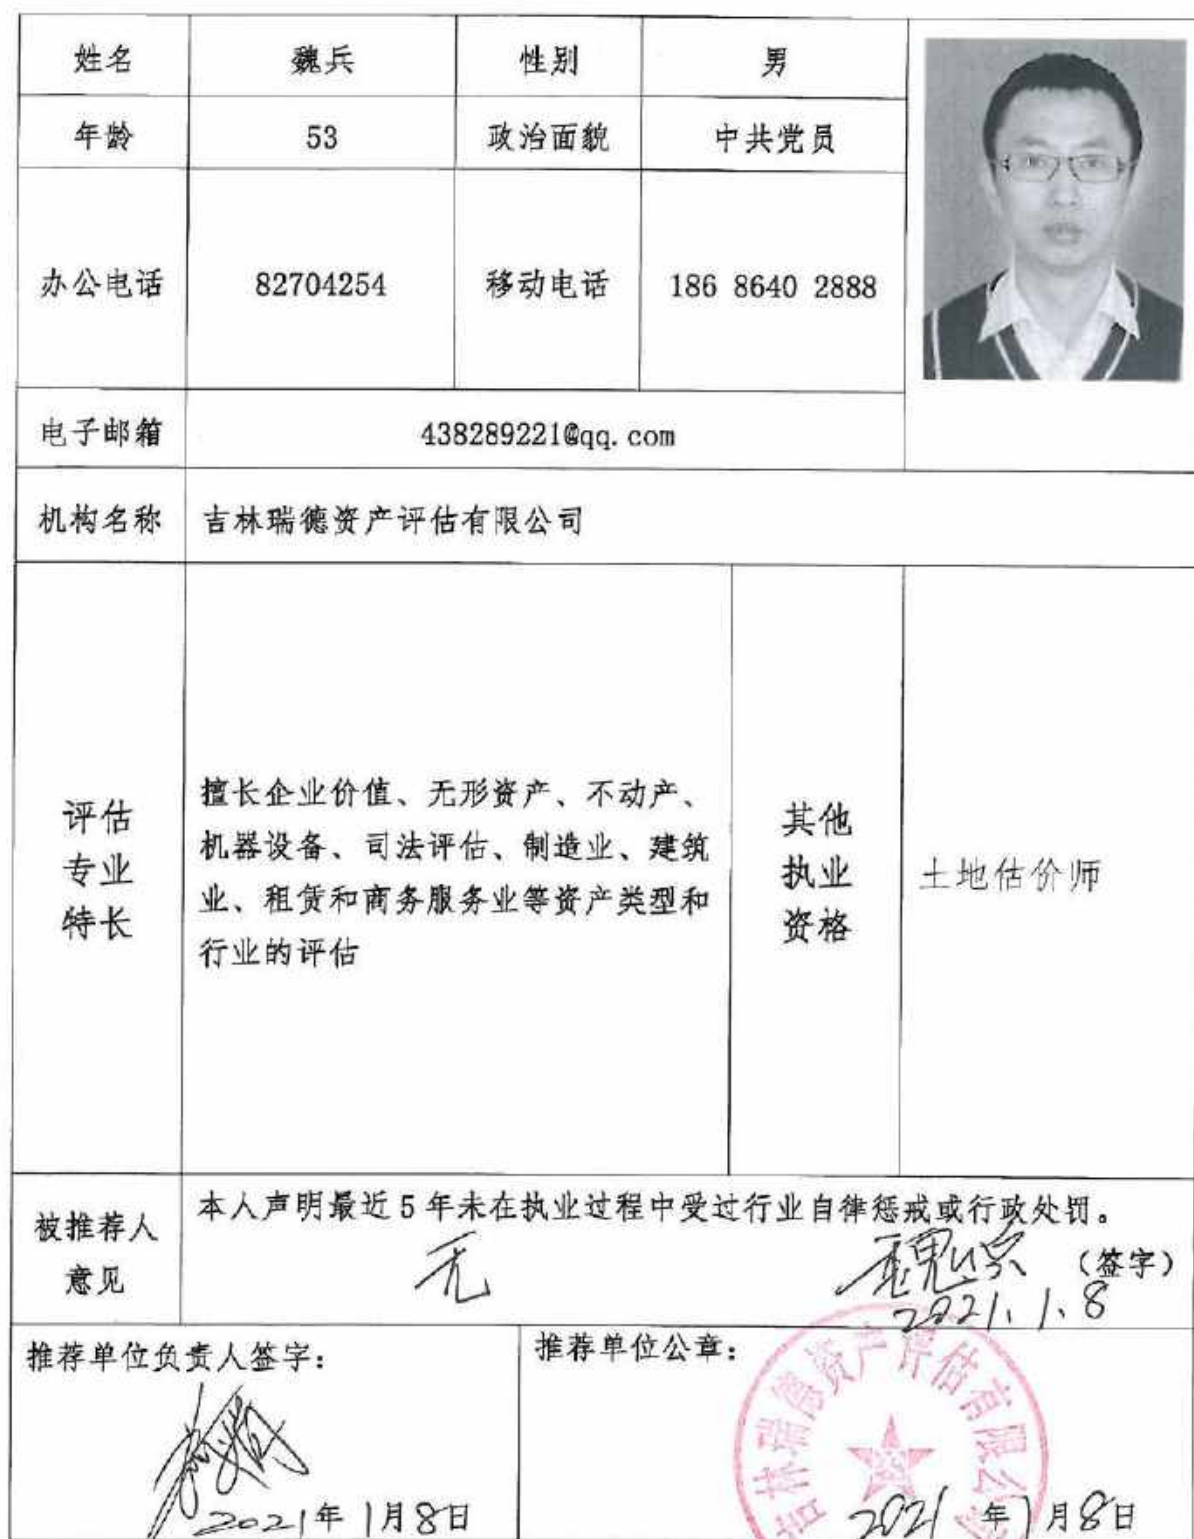 姓名 魏兵 性别 男
年龄 53 政治面貌 中共党员
办公电话 82704254 移动电话 186 8640 2888
电子邮箱 438289221@qq.com
机构名称 吉林瑞德资产评估有限公司
评估
专业
特长
擅长企业价值、无形资产、不动产、
机器设备、司法评估、制造业、建筑
业、租赁和商务服务业等资产类型和
行业的评估
其他
执业
资格
土地估价师
被推荐人
意见
本人声明最近5年未在执业过程中受过行业自律惩戒或行政处罚。
无 魏兵 (签字)
2021.1.8
推荐单位负责人签字:
2021年1月8日
推荐单位公章:
吉林瑞德资产评估有限公司
2021年1月8日